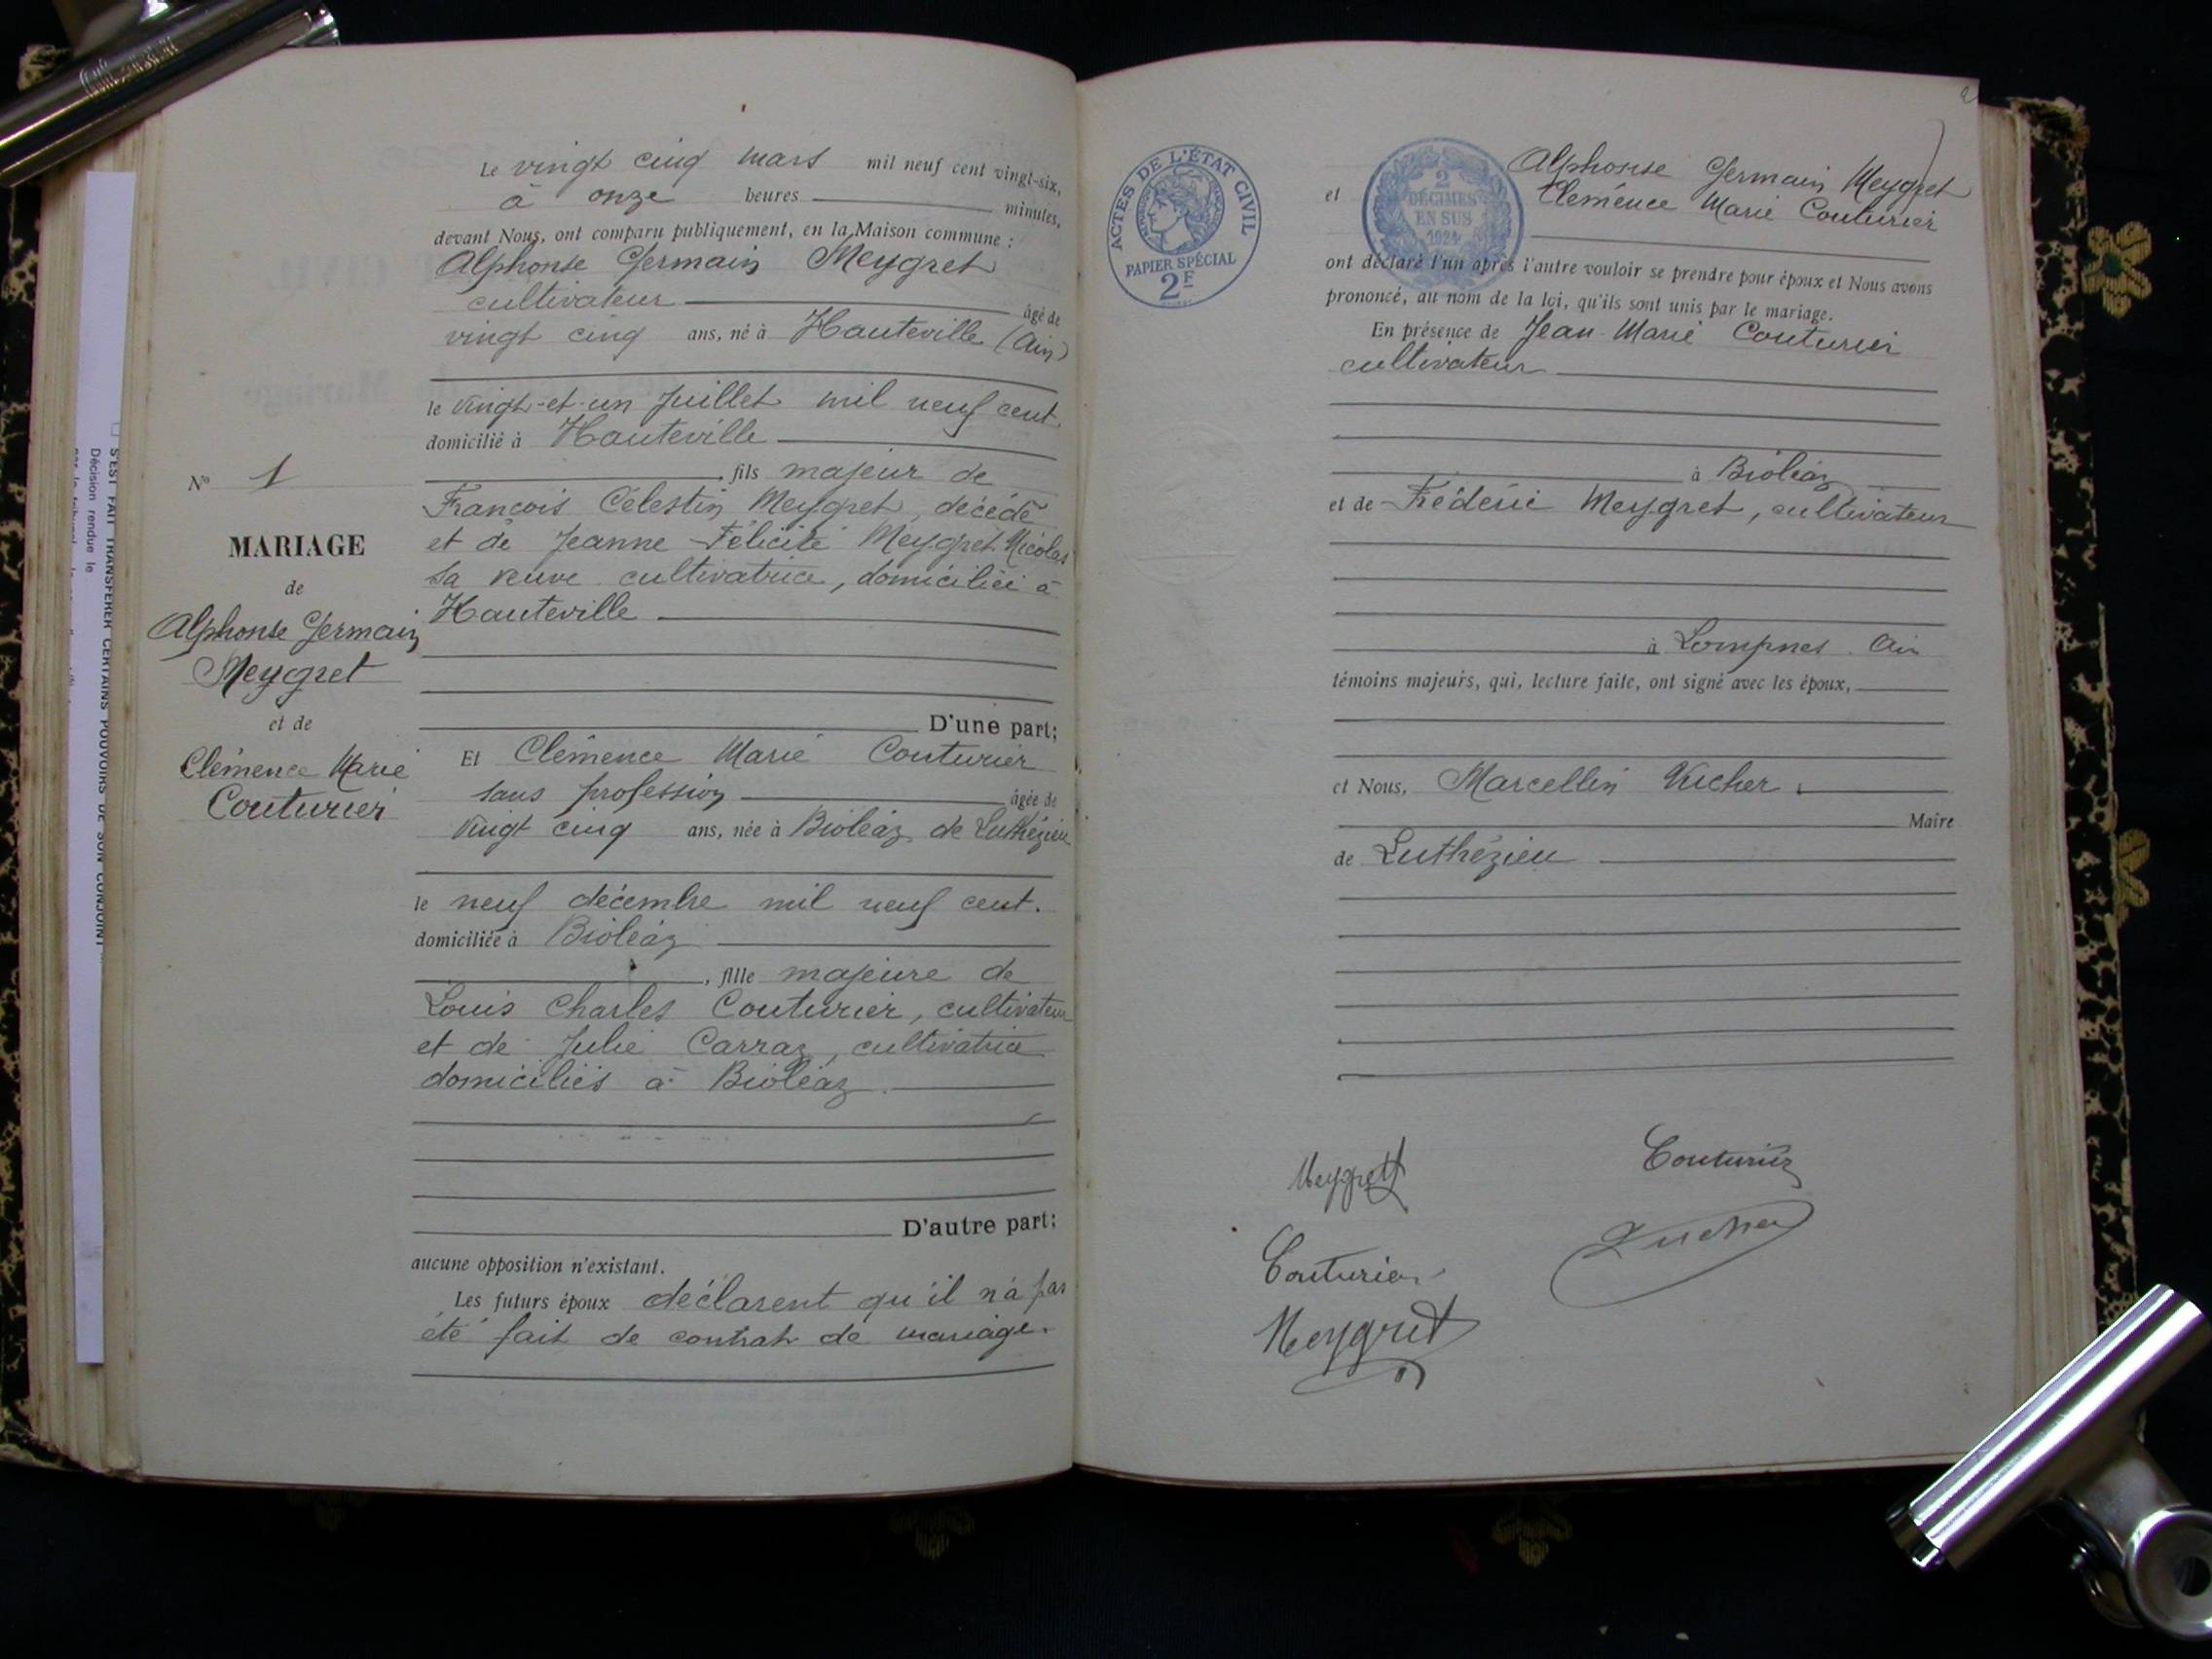 Nº 1
MARIAGE
de
Alphonse Germain
Meygret
et de
Clémence Marie
Couturier
Le vingt cinq mars mil neuf cent vingt-six,
à onze heures minutes,
devant Nous, ont comparu publiquement, en la Maison commune :
Alphonse Germain Meygret
cultivateur âgé de
vingt cinq ans, né à Hauteville (Ain)
le vingt-et-un Juillet mil neuf cent
domicilié à Hauteville
, fils majeur de
François Célestin Meygret, décédé
et de Jeanne Félicité Meygret Nicolas
sa veuve cultivatrice, domiciliée à
Hauteville
D'une part;
Et Clémence Marie Couturier
sans profession âgée de
vingt cinq ans, née à Bioléaz de Luthézieu
le neuf décembre mil neuf cent.
domiciliée à Bioléaz
, fille majeure de
Louis Charles Couturier, cultivateur
et de Julie Carraz, cultivatrice
domiciliés à Bioléaz.
D'autre part;
aucune opposition n'existant.
Les futurs époux déclarent qu'il n'a pas
été fait de contrat de mariage.
S'EST FAIT TRANSFÉRER CERTAINS POUVOIRS DE SON CONJOINT
Décision rendue le
ACTES DE L'ÉTAT CIVIL
PAPIER SPÉCIAL
2F
2
DÉCIMES
EN SUS
1924
Alphonse Germain Meygret
et Clémence Marie Couturier
ont déclaré l'un après l'autre vouloir se prendre pour époux et Nous avons
prononcé, au nom de la loi, qu'ils sont unis par le mariage.
En présence de Jean-Marie Couturier
cultivateur
à Bioléaz
et de Frédéric Meygret, cultivateur
à Lompnes. Ain
témoins majeurs, qui, lecture faite, ont signé avec les époux,
et Nous, Marcellin Vucher,
Maire
de Luthézieu
Meygret
Couturier
Couturier
Meygret